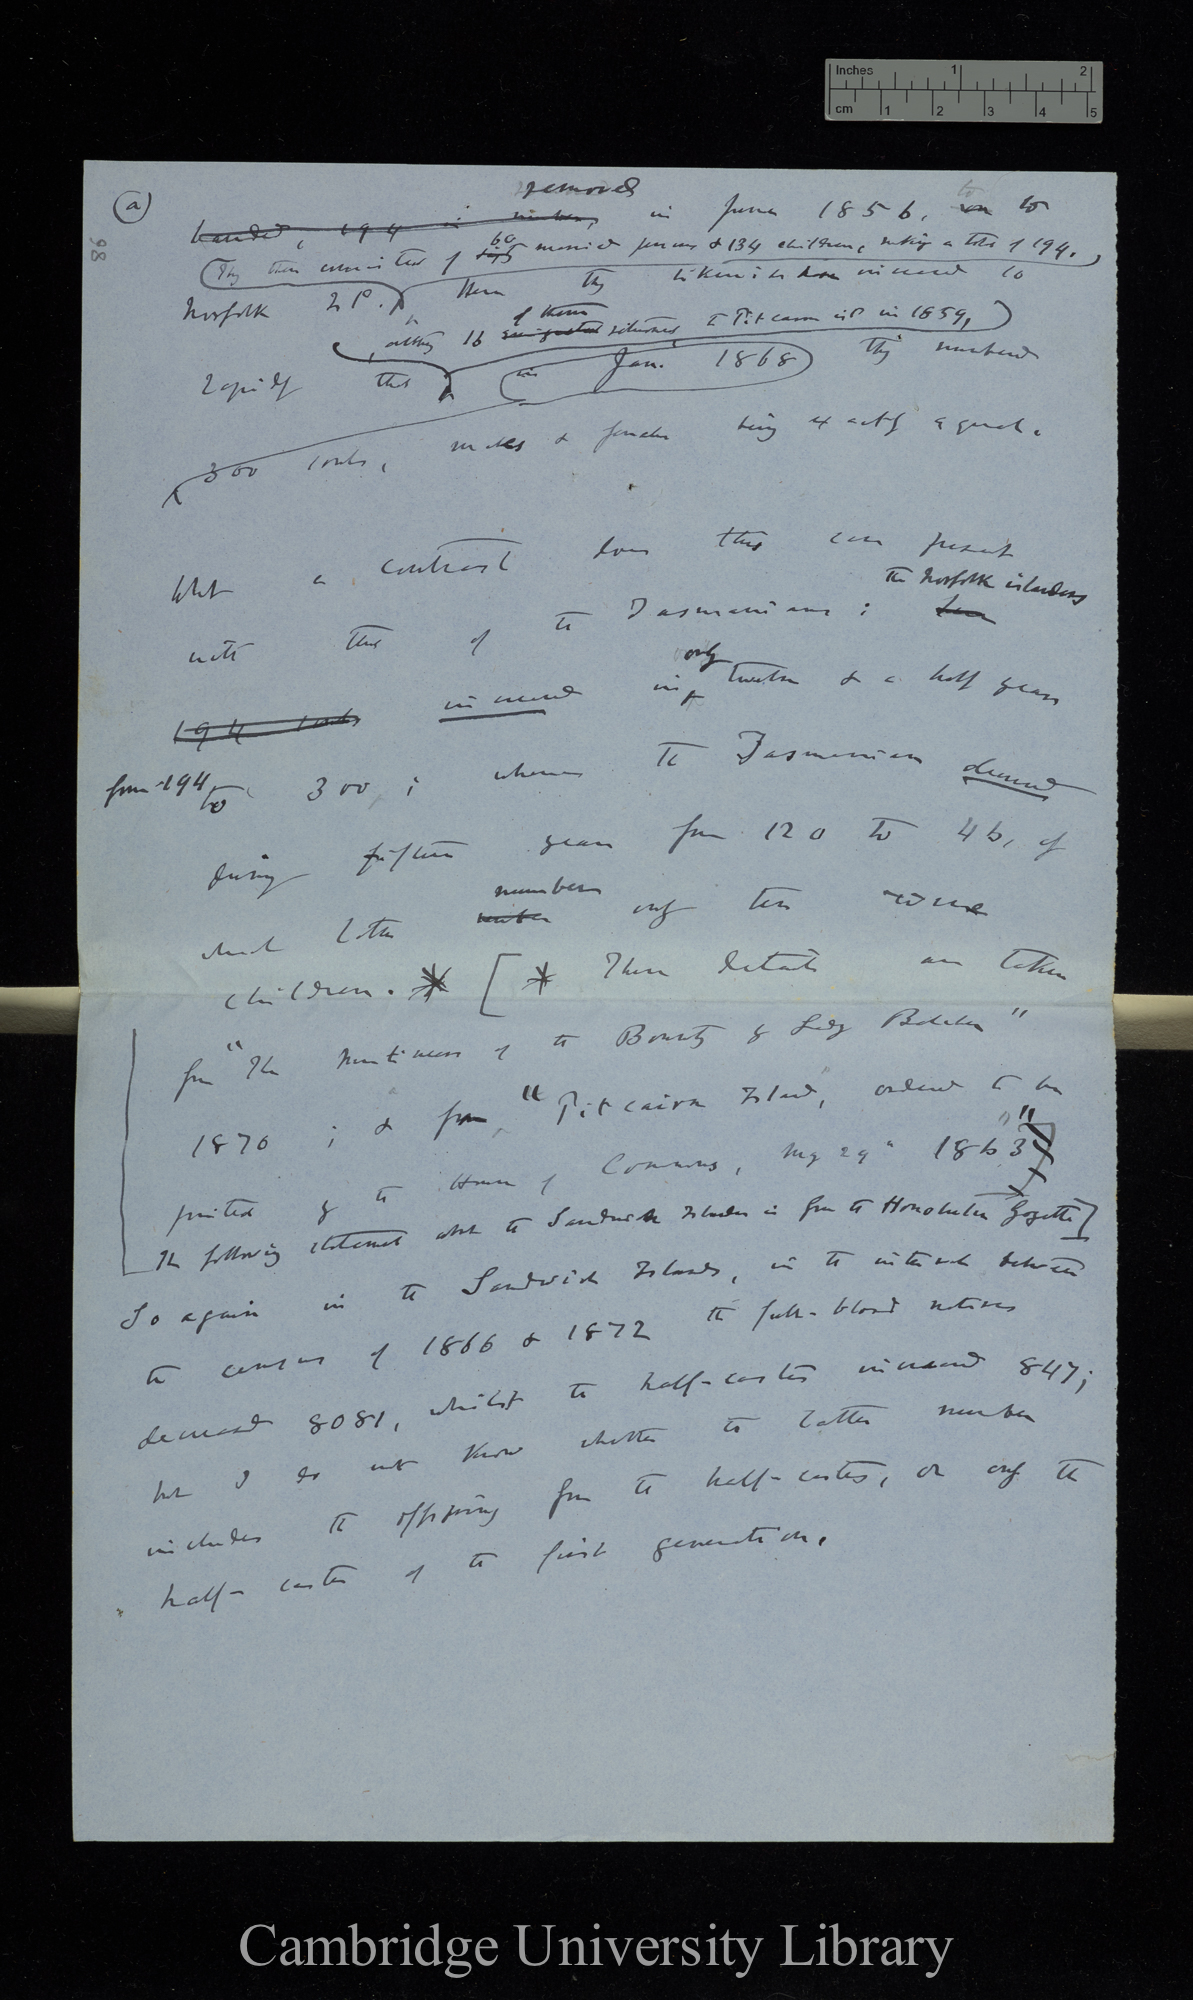 Inches 1 2
cm 1 2 3 4 5
(a)
98
removed
landed, 194 in number, in June 1856, to
60
They then consisted of married persons & 134 children, making a total of 194.
Norfolk Isd. Here they likewise increased so
of them
, althoug 16 emigrated returned to Pitcairn isd in 1859,
rapidly that in Jan. 1868 they numbered
300 souls, males & females being exactly equal.
What a contrast does this case present
the Norfolk islanders
with that of the Tasmanians;
only
194 souls increased in twelve & a half years
from 194
to 300; whereas the Tasmanians decreased
during fifteen years from 120 to 46, of
numbers
which latter number only ten were
children. * [* These details are taken
from "The Mutineers of the Bounty by Lady Belcher"
1870; & from "Pitcairn Island, ordered to be
printed by the House of Commons, May 29" 1863"
The following statement about the Sandwich Islanders is from the Honolulu Gazette]
So again in the Sandwich Islands, in the interval between
the census of 1866 & 1872 the full-blood natives
decreased 8081, whilst the half-castes increased 847;
but I do not know whether the latter number
includes the offspring from the half-castes, or only the
half-castes of the first generation.
Cambridge University Library